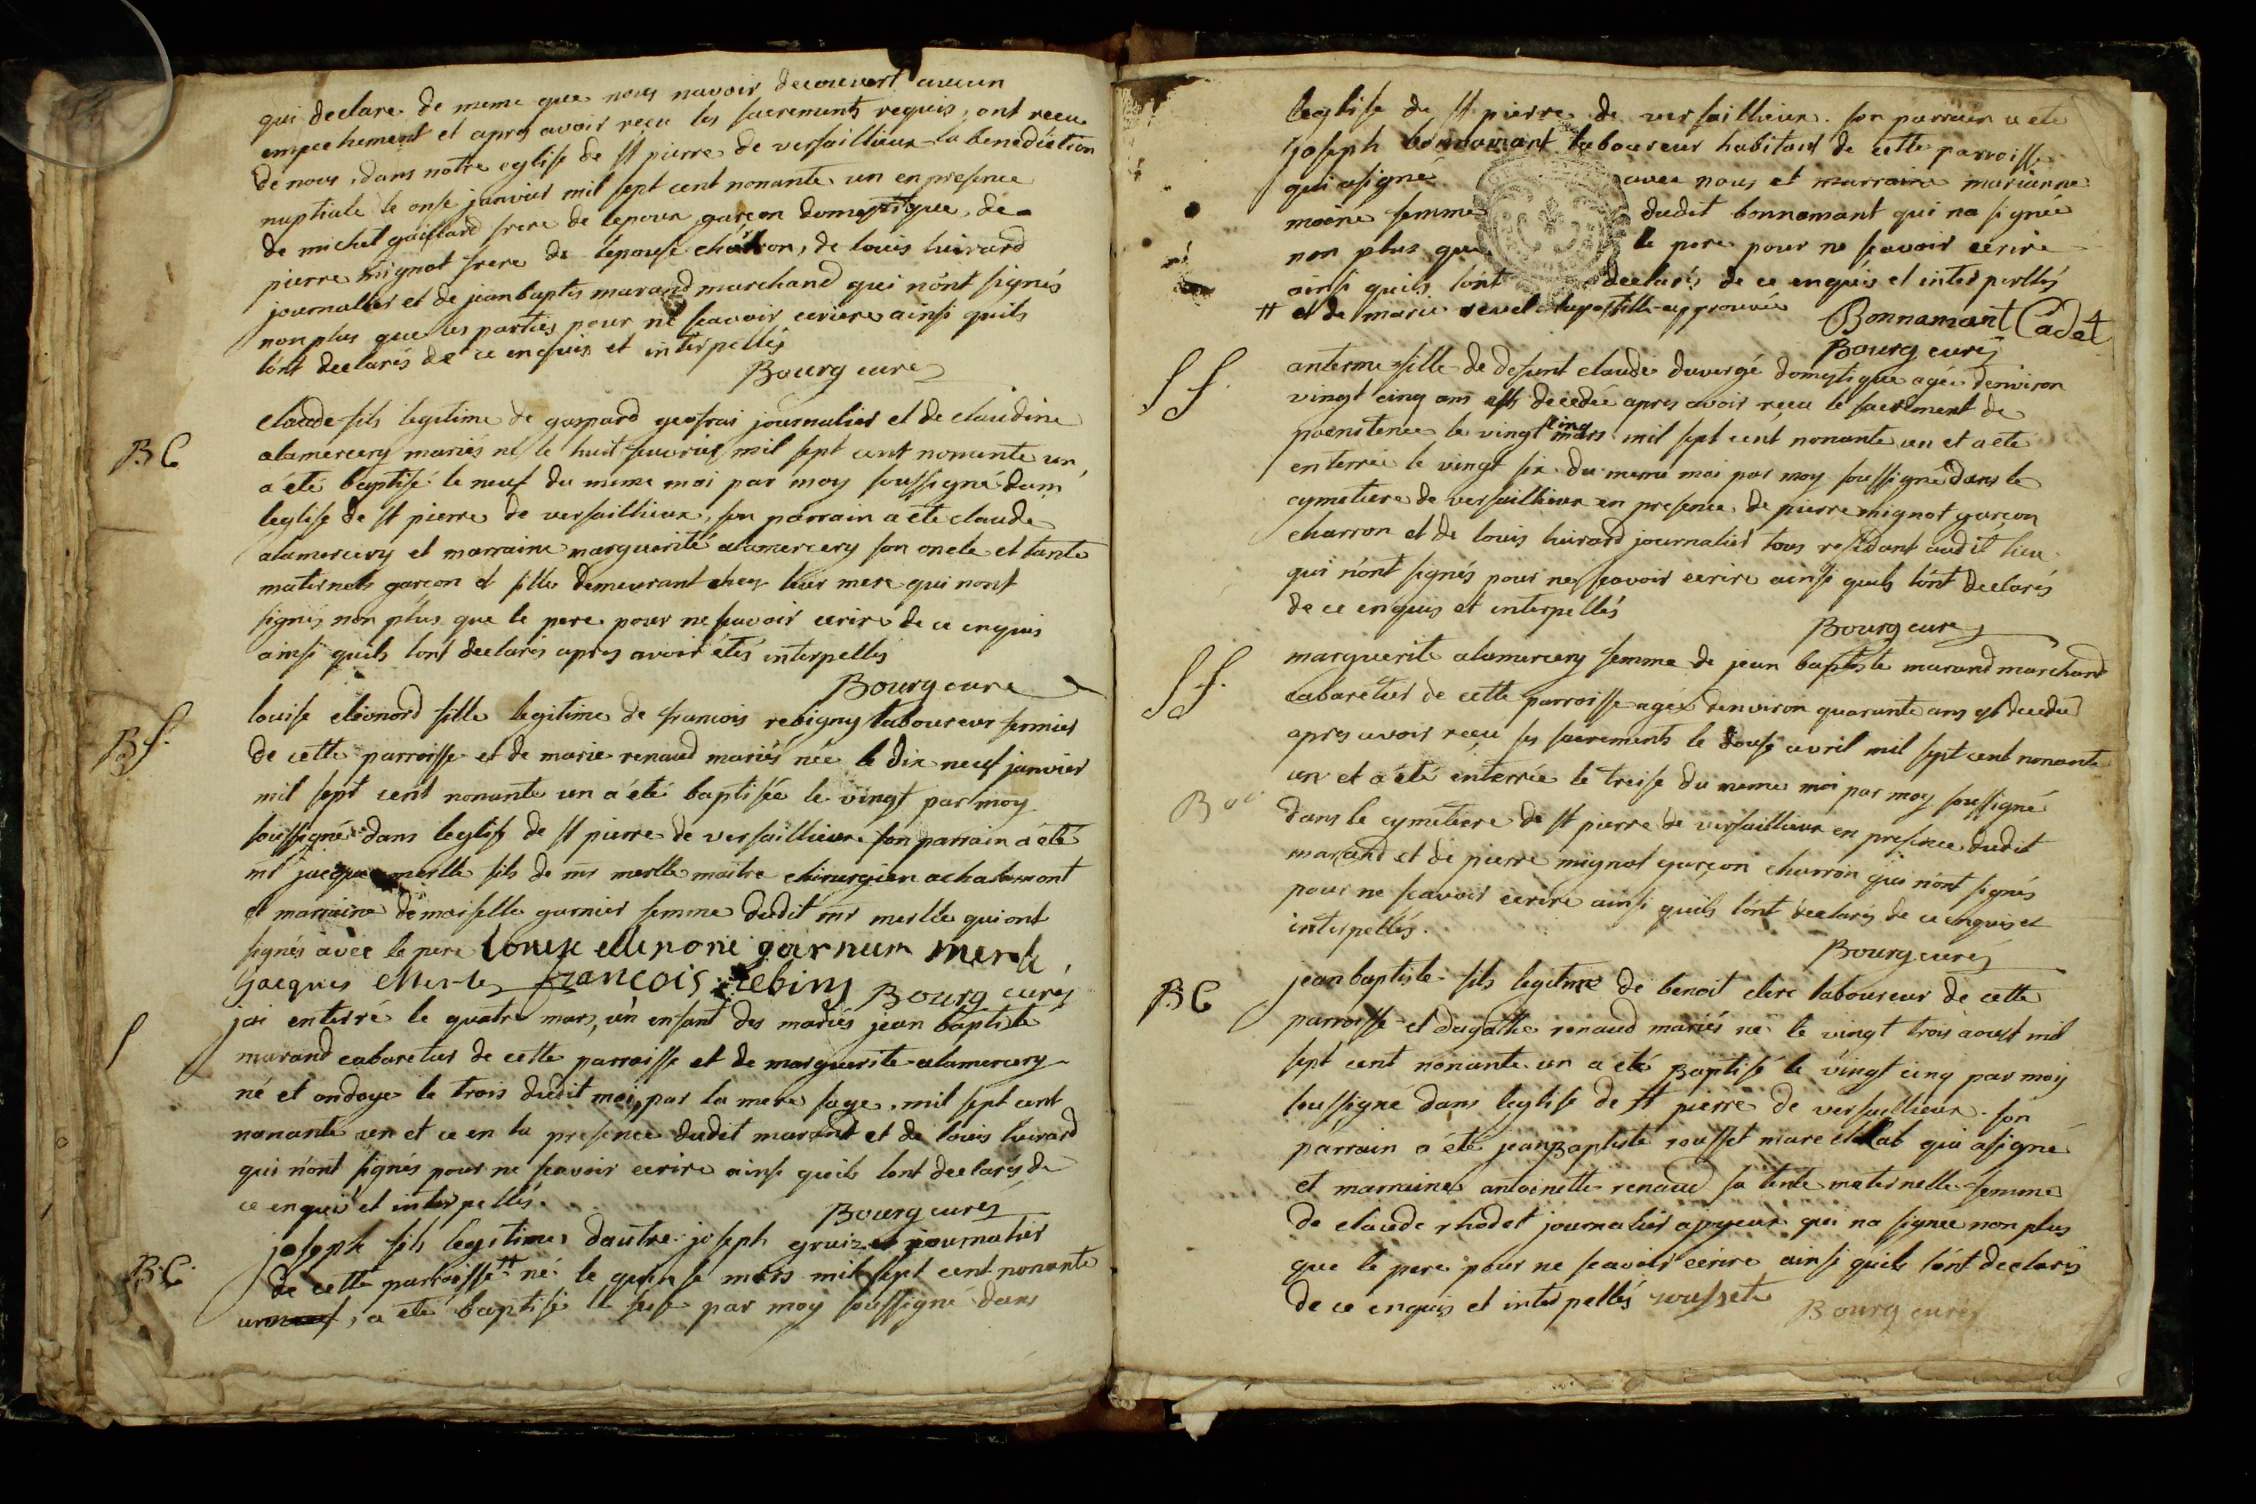 qui declare de meme que nous navoir decouvert aucun
empechement et apres avoir reçu les sacrements requis, ont recu
de nous, dans notre eglise de st pierre de versaillieux la benediction
nuptiale le onse janvier mil sept cent nonante un en presence
de michel gaillard frere de lepoux garçon domestique, de
pierre mignot frere de lepouse charron, de louis huirard
journallier et de jean baptis marand marchand qui n'ont signés
non plus que les parties pour ne scavoir ecriere ainsi quils
lont declarés de ce enquis et interpellés
Bourg curé
B C
claude fils legitime de gaspard geofrai journalier et de claudine
alamercery mariés né le huit fevrier mil sept cent nonante un,
a été baptisé le neuf du meme moi par moy soussigné dans
leglise de st pierre de versaillieux, son parrain a été claude
alamercery et marraine marguerite alamercery son oncle et tante
maternels garçon et fille demeurant chez leur mere qui nont
signés non plus que le pere pour ne scavoir ecrire de ce enquis
ainsi quils lont declarés apres avoir étés interpellés
Bourg curé
B f.
louise eléonord fille legitime de francois rebigny laboureur fermier
de cette parroisse et de marie renaud mariés née le dix neuf janvier
mil sept cent nonante un a été baptisée le vingt par moy
soussigné dans leglise de st pierre de versaillieux son parrain a été
mr jacque merlle fils de mr merlle maitre chirurgien a chalamont
et marraine demoiselle garnier femme dudit mr merlle qui ont
signés avec le pere louise ellenore garnier merle
jacques Merle francois rebiny Bourg curé
f
jai enterré le quatre mars, un enfant des mariés jean baptiste
marand cabaretier de cette parroisse et de marguerite alamercery
né et ondoye le trois dudit moi, par la mere sage, mil sept cent
nonante un et ce en la presence dudit marand et de louis huirard
qui n'ont signés pour ne scavoir ecrire ainsi quils lont declarés de
ce enqui et interpellés.
Bourg curé
B.C.
joseph fils legitimes dautre joseph journalier
de cette parroisse # né le quinse mars mil sept cent nonante
un, a été baptisé le sese par moy soussigné dans
leglise de st pierre de versaillieux. son parrain a été
joseph bonnamant laboureur habitant de cette parroisse
qui a signé avec nous et marraine marianne
moëne femme dudit bonnamant qui na signée
non plus que le pere pour ne scavoir ecrire
ainsi quils lont declarés de ce enquis et interpellés
# et de marie revel lapostille approuvée Bonnamant Cadet
Bourg curé
f f.
anterme fille de defunt claude duvergé domestique agée denviron
vingt cinq ans est decedée apres avoir reçu le sacrement de
poenitence le vingt cinq mars mil sept cent nonante un et a été
enterrée le vingt six du meme moi par moy soussigné dans le
cymetiere de versaillieux en presence de pierre mignot garçon
charron et de louis huirard journalier tous residant audit lieu
qui n'ont signés pour ne scavoir ecrire ainsi quils lont declarés
de ce enquis et interpéllés
Bourg curé
f f.
marguerite alamercery femme de jean baptiste marand marchand
cabaretier de cette parroisse agée denviron quarante ans est decedée
apres avoir recu ses sacrements le douse avril mil sept cent nonante
un et a été enterrée le treise du meme moi par moy soussigné
dans le cymetiere de st pierre de versaillieux en presence dudit
marand et de pierre mignot garçon charron qui n'ont signés
pour ne scavoir ecrire ainsi quils lont declarés de ce enquis et
interpellés.
Bourg curé
B C
jean baptiste fils legitime de benoit clerc laboureur de cette
parroisse et dagathe renaud mariés né le vingt trois aoust mil
sept cent nonante un a été baptisé le vingt cinq par moy
soussigné dans leglise de st pierre de versaillieux. son
parrain a été jean baptiste rousset qui a signé
et marraine antoinette renaud sa tente maternelle femme
de claude rhodet journalier qui na signée non plus
que le pere pour ne scavoir ecrire ainsi quils lont declarés
de ce enquis et interpellés rousset
Bourg curé